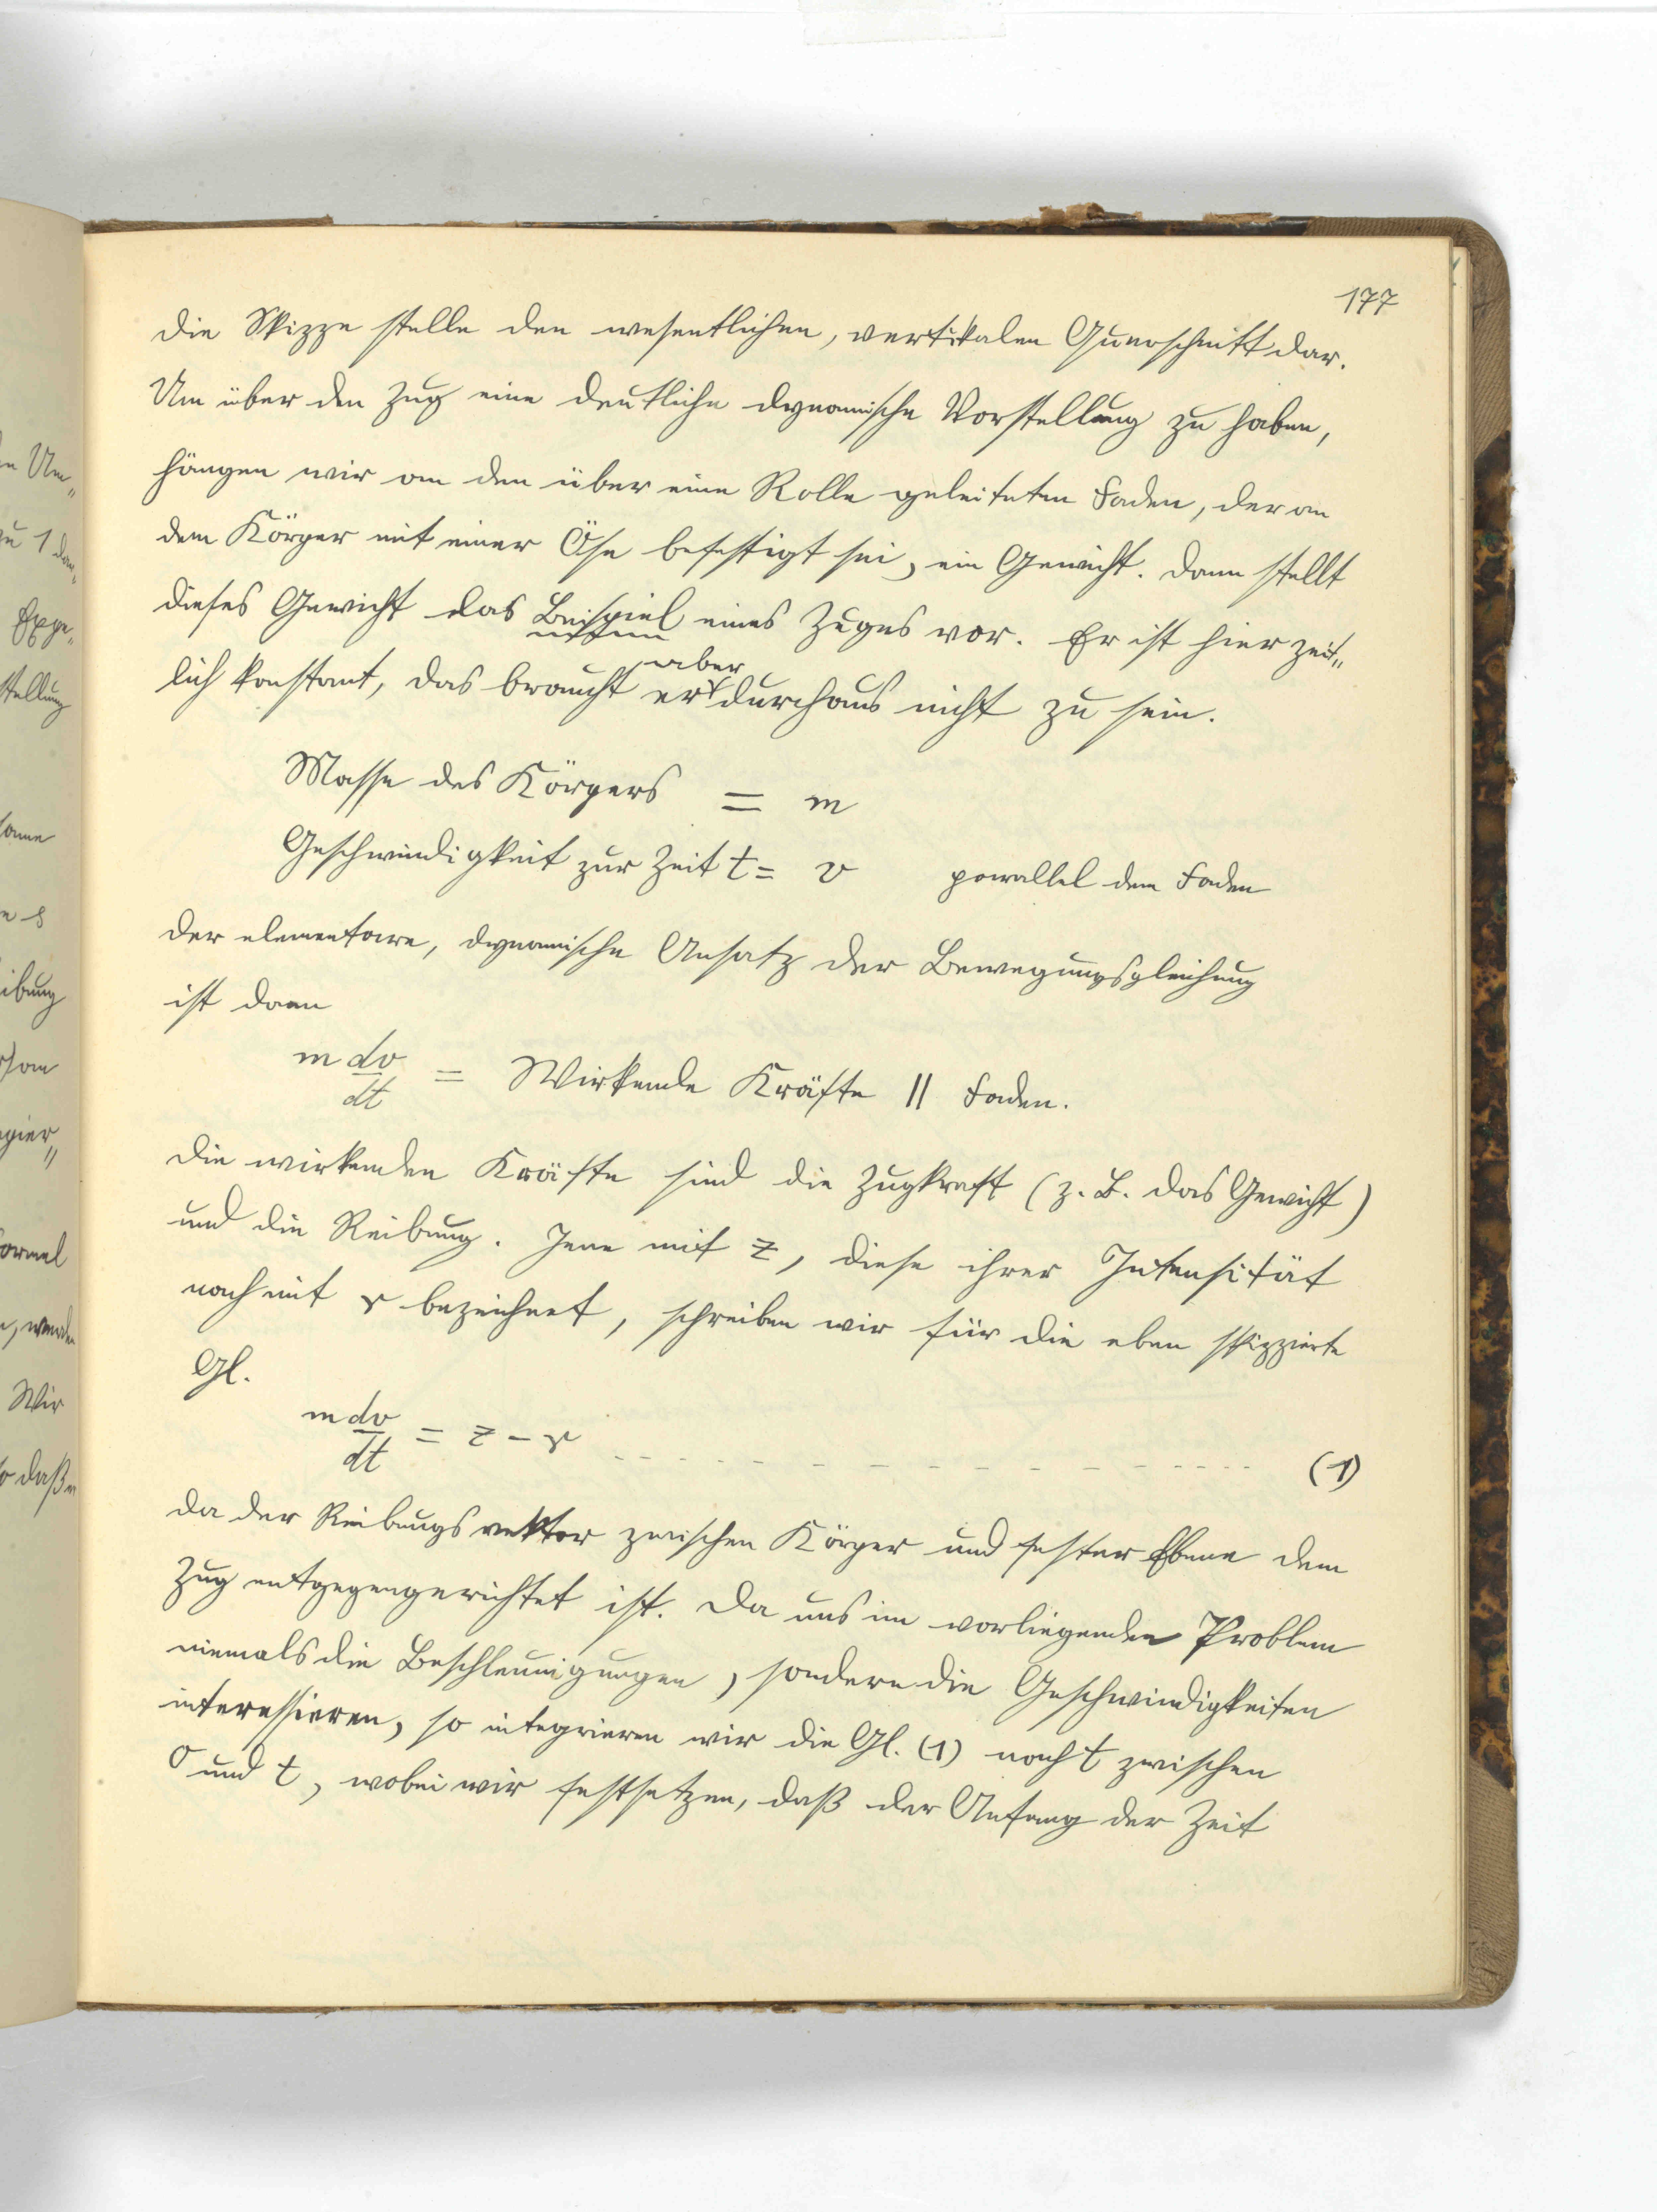 177
Die Skizze stelle den wesentlichen, vertikalen Querschnitt dar.
Um über den Zug eine deutliche dynamische Vorstellung zu haben,
hängen wir an den über eine Rolle geleiteten Faden, der an
dem Körper mit einer Öse befestigt sei, ein Gewicht. Dann stellt
dieses Gewicht das Beispiel eines Zuges vor. Er ist hier zeit„
lich konstant, das braucht er aber durchaus nicht zu sein.
Masse des Körpers = m
Geschwindigkeit zur Zeit t = v parallel dem Faden
Der elementare, dynamische Ansatz der Bewegungsgleichung
ist dann
m dv/dt = Wirkende Kräfte || Faden.
Die wirkenden Kräfte sind die Zugkraft (z. B. das Gewicht)
und die Reibung. Jene mit z, diese ihrer Intensität
nach mit r bezeichnet, schreiben wir für die eben skizzierte
Gl.
m dv/dt = z - r - - - - - - - - - - - - - - - - (1)
da der Reibungsvektor zwischen Körper und fester Ebene dem
Zug entgegengerichtet ist. Da uns im vorliegenden Problem
niemals die Beschleunigungen, sondern die Geschwindigkeiten
interessieren, so integrieren wir die Gl. (1) nach t zwischen
0 und t, wobei wir festsetzen, daß der Anfang der Zeit